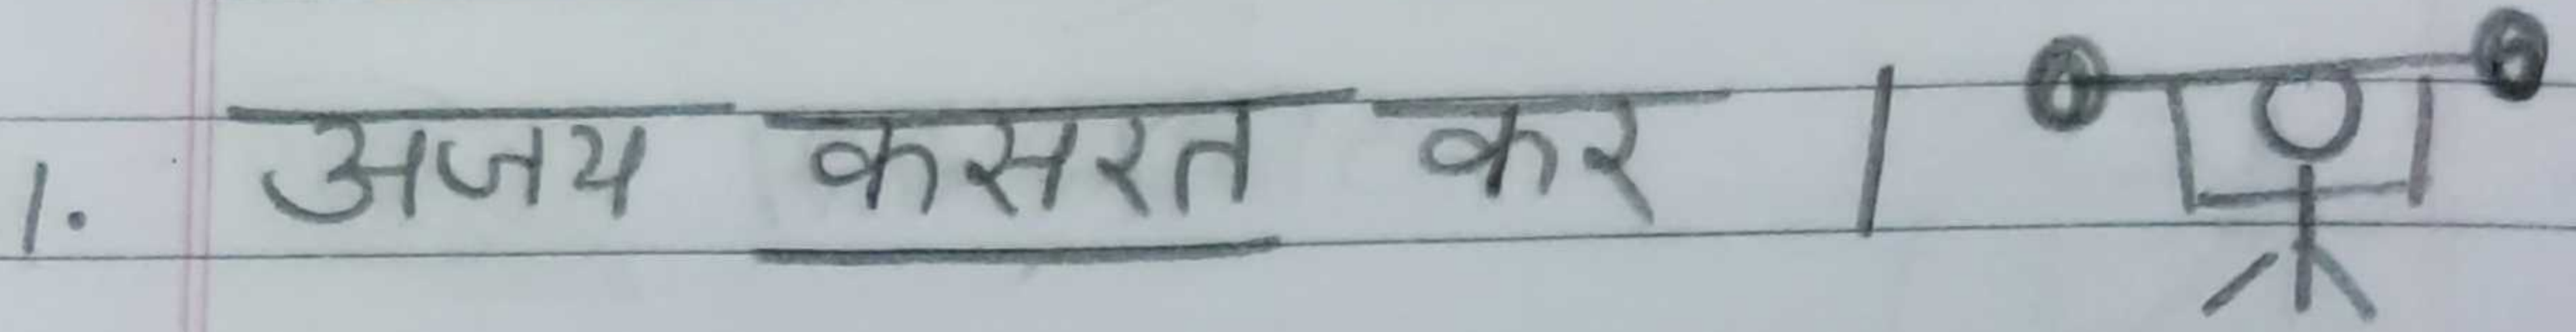 1. अजय कसरत कर ।